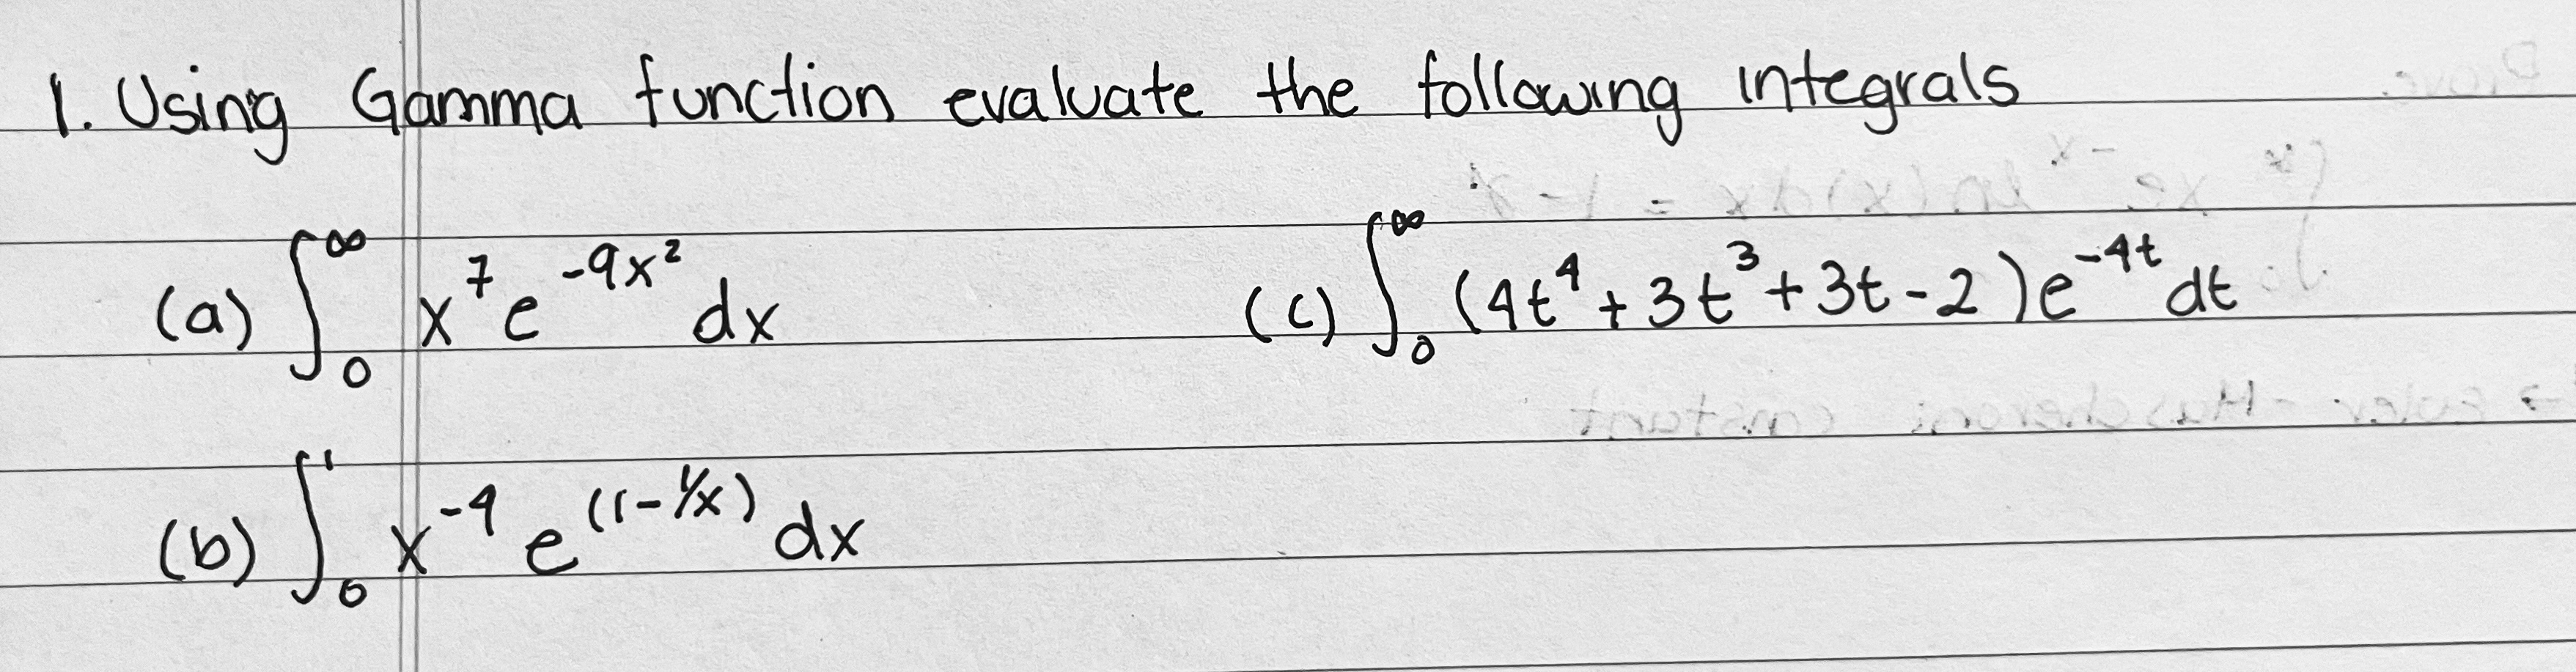 1. Using Gamma function evaluate the following integrals
(a) ∫₀^∞ x⁷ e^(-9x²) dx
(c) ∫₀^∞ (4t⁴ + 3t³ + 3t - 2) e^(-4t) dt
(b) ∫₀¹ x⁻⁴ e^((1-1/x)) dx